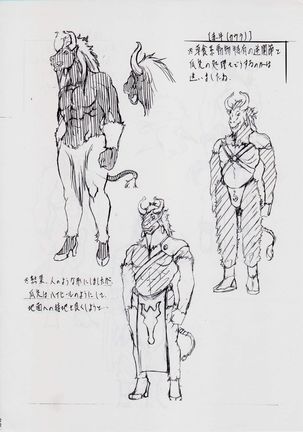 ※草食系動物特有の逆関節と
爪先の処理をどうするのかは
迷いましたね。
※結果、人のような形にしましたが
爪先はハイヒールのようにして、
地面への接地を良くしようと…